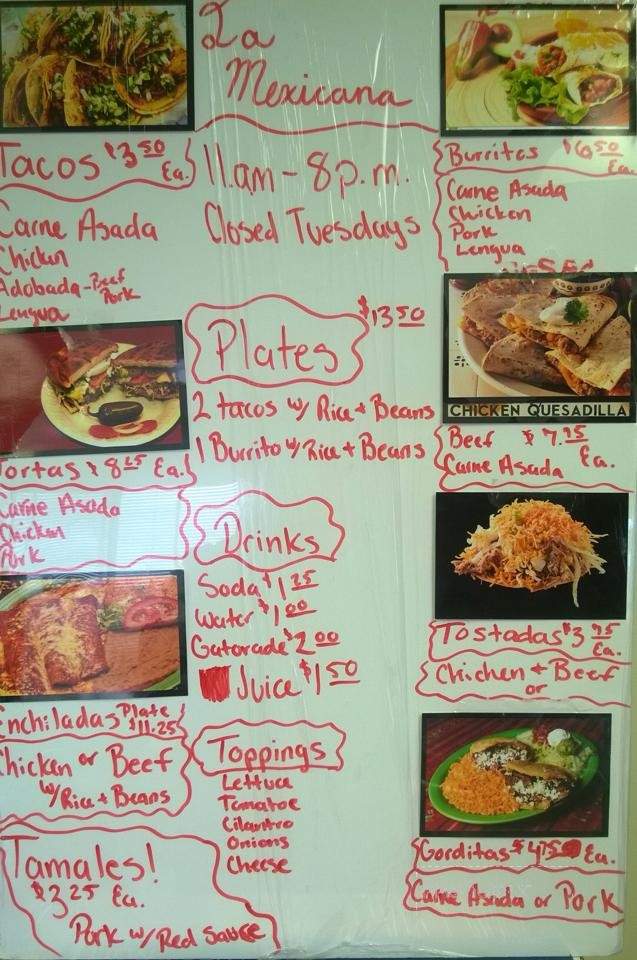 La
Mexicana
11am - 8p.m.
Closed Tuesdays
Tacos $3.50
Ea.
Carne Asada
Chicken
Adobada - Beef
Pork
Lengua
Tortas $8.25 Ea.
Carne Asada
Chicken
Pork
Enchiladas Plate
$11.25
Chicken or Beef
w/Rice + Beans
Tamales!
$3.25 Ea.
Pork w/ Red Sauce
Plates $13.50
2 tacos w/ Rice + Beans
1 Burrito w/ Rice + Beans
Drinks
Soda $1.25
Water $1.00
Gatorade $2.00
Juice $1.50
Toppings
Lettuce
Tomatoe
Cilantro
Onions
Cheese
Burritos $6.50
Ea.
Carne Asada
Chicken
Pork
Lengua
CHICKEN QUESADILLA
Beef $7.75
Carne Asada Ea.
Tostadas $3.75
Ea.
Chicken + Beef
or
Gorditas $4.75 Ea.
Carne Asada or Pork